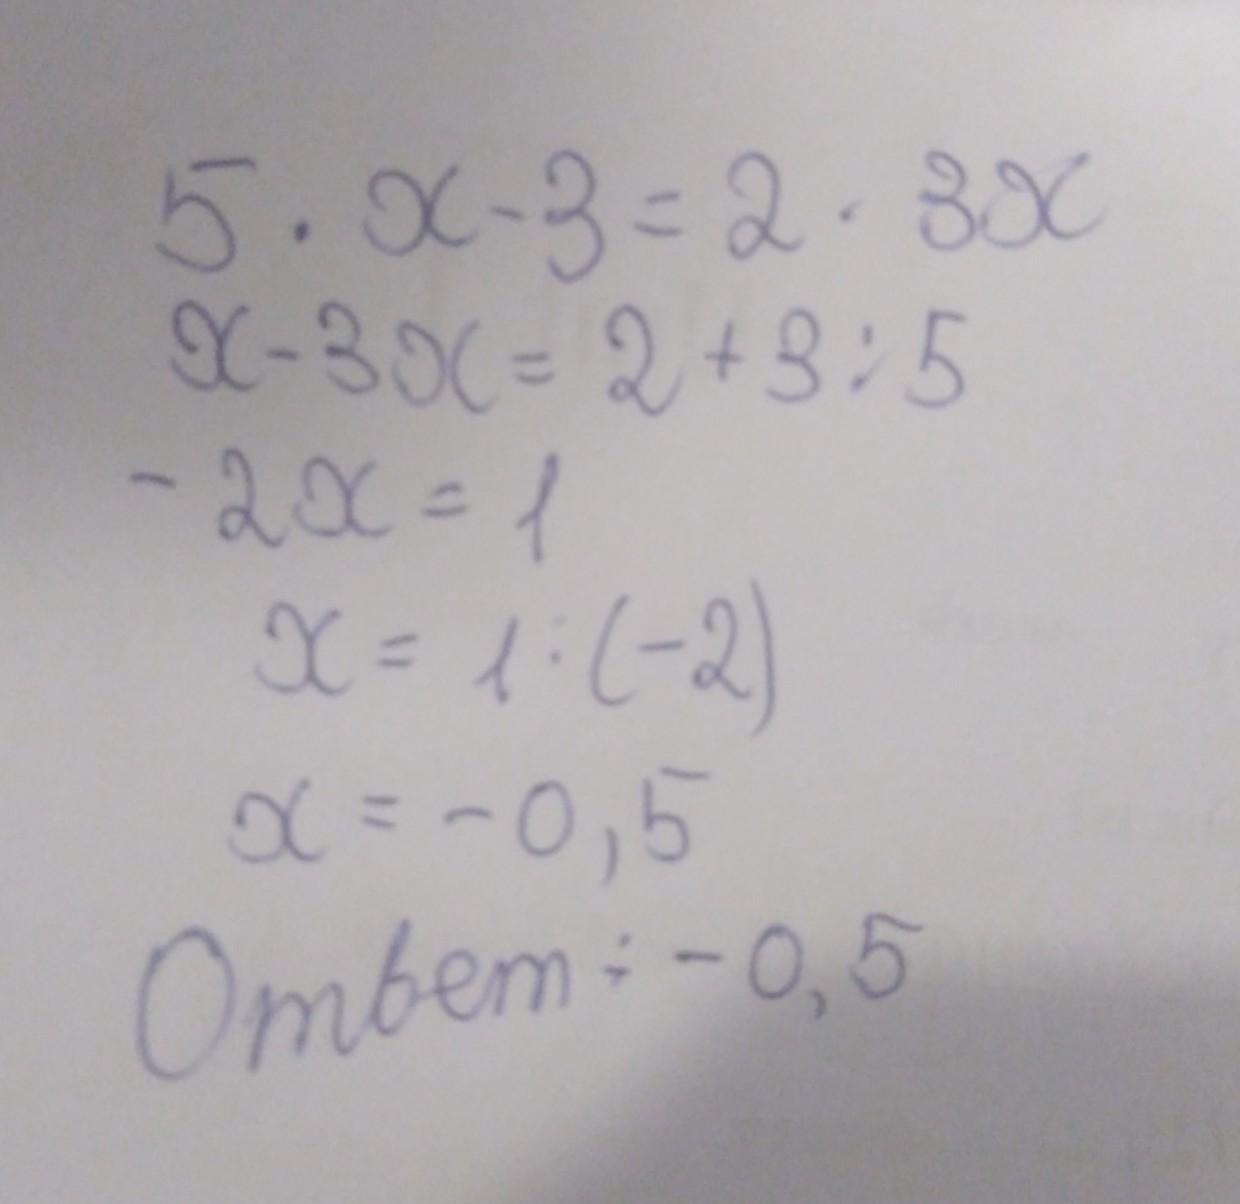 5 · x - 3 = 2 · 3x
x - 3x = 2 + 3 : 5
- 2x = 1
x = 1 : (-2)
x = - 0,5
Ответ : - 0,5